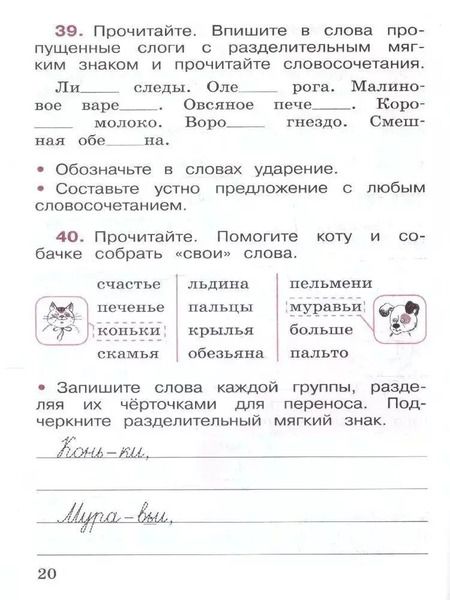 39. Прочитайте. Впишите в слова про-
пущенные слоги с разделительным мяг-
ким знаком и прочитайте словосочетания.
Ли____ следы. Оле____ рога. Малино-
вое варе____. Овсяное пече____. Коро-
____ молоко. Воро____ гнездо. Смеш-
ная обе____на.
• Обозначьте в словах ударение.
• Составьте устно предложение с любым
словосочетанием.
40. Прочитайте. Помогите коту и со-
бачке собрать «свои» слова.
счастье льдина пельмени
печенье пальцы муравьи
коньки крылья больше
скамья обезьяна пальто
• Запишите слова каждой группы, разде-
ляя их чёрточками для переноса. Под-
черкните разделительный мягкий знак.
Конь-ки,
Мура-вьи,
20